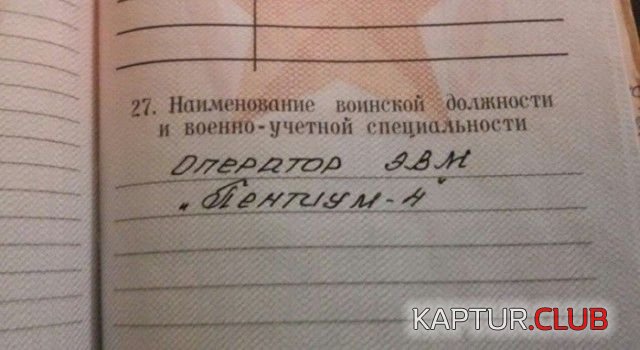 27. Наименование воинской должности
и военно-учетной специальности
Оператор ЭВМ
"Пентиум-4"
KAPTUR.CLUB